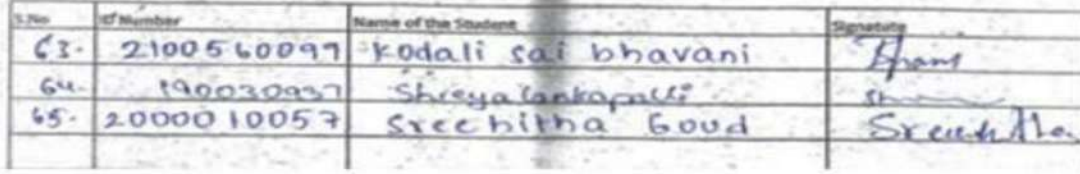 S.No ID Number Name of the Student Signature
63. 2100560099 kodali sai bhavani Bhavani
64. 190030937 Shreya Lankapalli
65. 2000010057 Sreehitha Goud Sreehitha